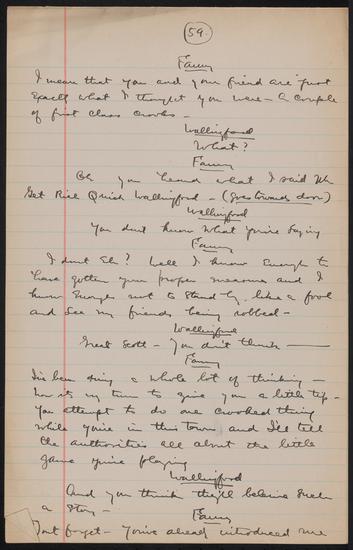 59.
Fanny
I mean that you and your friend are just
exactly what I thought you were – a couple
of first class crooks –
Wallingford
What?
Fanny
Oh you heard what I said Mr
Get Rich Quick Wallingford – (Goes towards door)
Wallingford
You don't know what you're saying
Fanny
I don't Eh? Well I know Enough to
have gotten your proper measure and I
know Enough not to stand by like a fool
and see my friends being robbed –
Wallingford
Great Scott – You don't think –
Fanny
I've been doing a whole lot of thinking –
Now its my turn to give you a little tip –
You attempt to do one crooked thing
while you're in this town and I'll tell
the authorities all about the little
game you're playing
Wallingford
And you think they'll believe such
a story –
Fanny
Don't forget – You've already introduced me